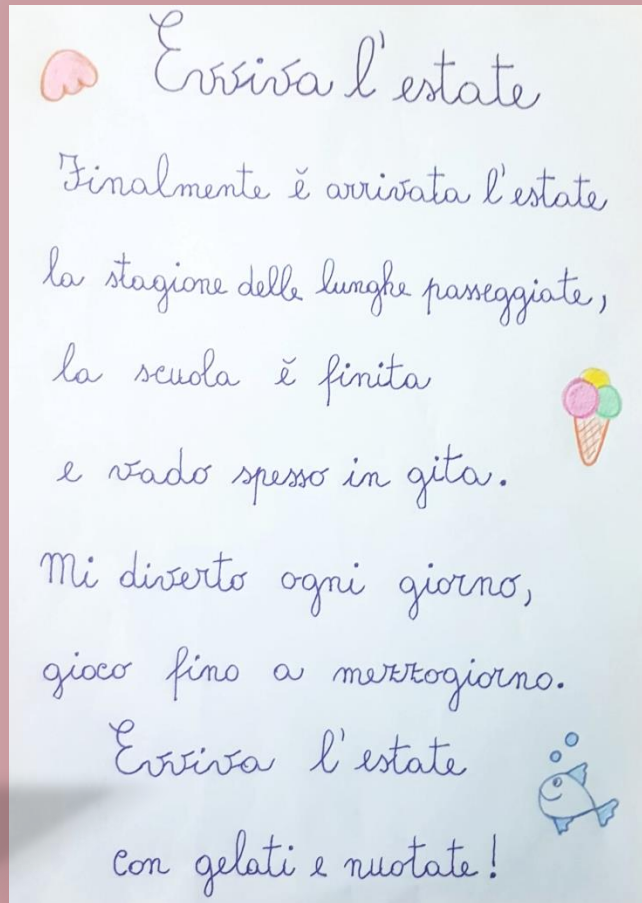 Evviva l'estate
Finalmente è arrivata l'estate
la stagione delle lunghe passeggiate,
la scuola è finita
e vado spesso in gita.
Mi diverto ogni giorno,
gioco fino a mezzogiorno.
Evviva l'estate
con gelati e nuotate!